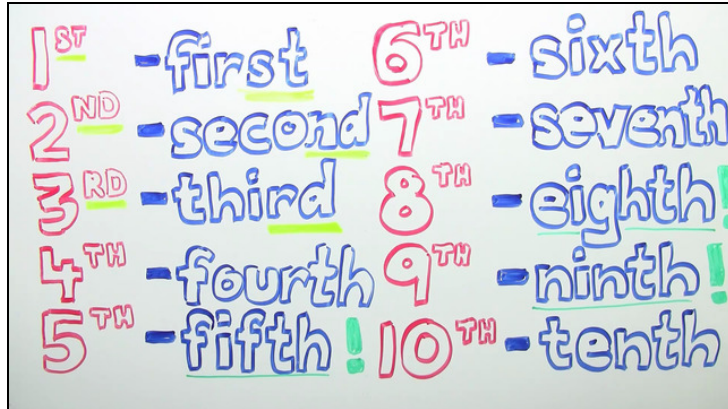 1ST - first
2ND - second
3RD - third
4TH - fourth
5TH - fifth!
6TH - sixth
7TH - seventh
8TH - eighth!
9TH - ninth!
10TH - tenth